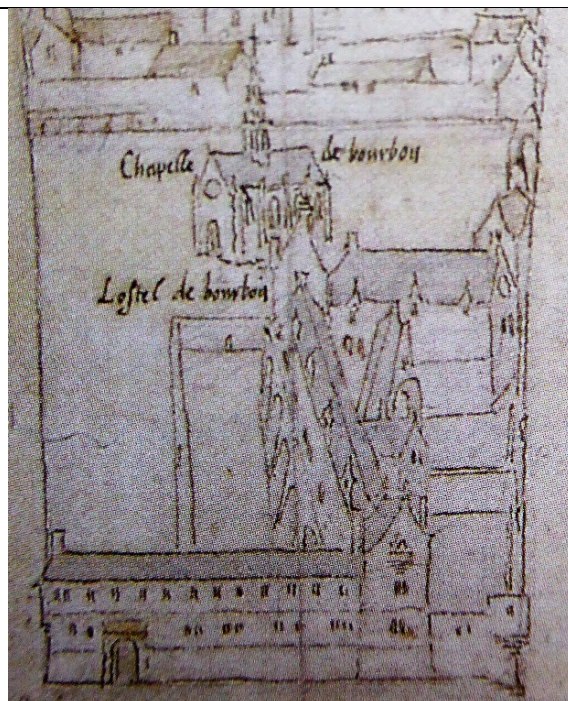 Chapelle de bourbon
Lostel de bourbon